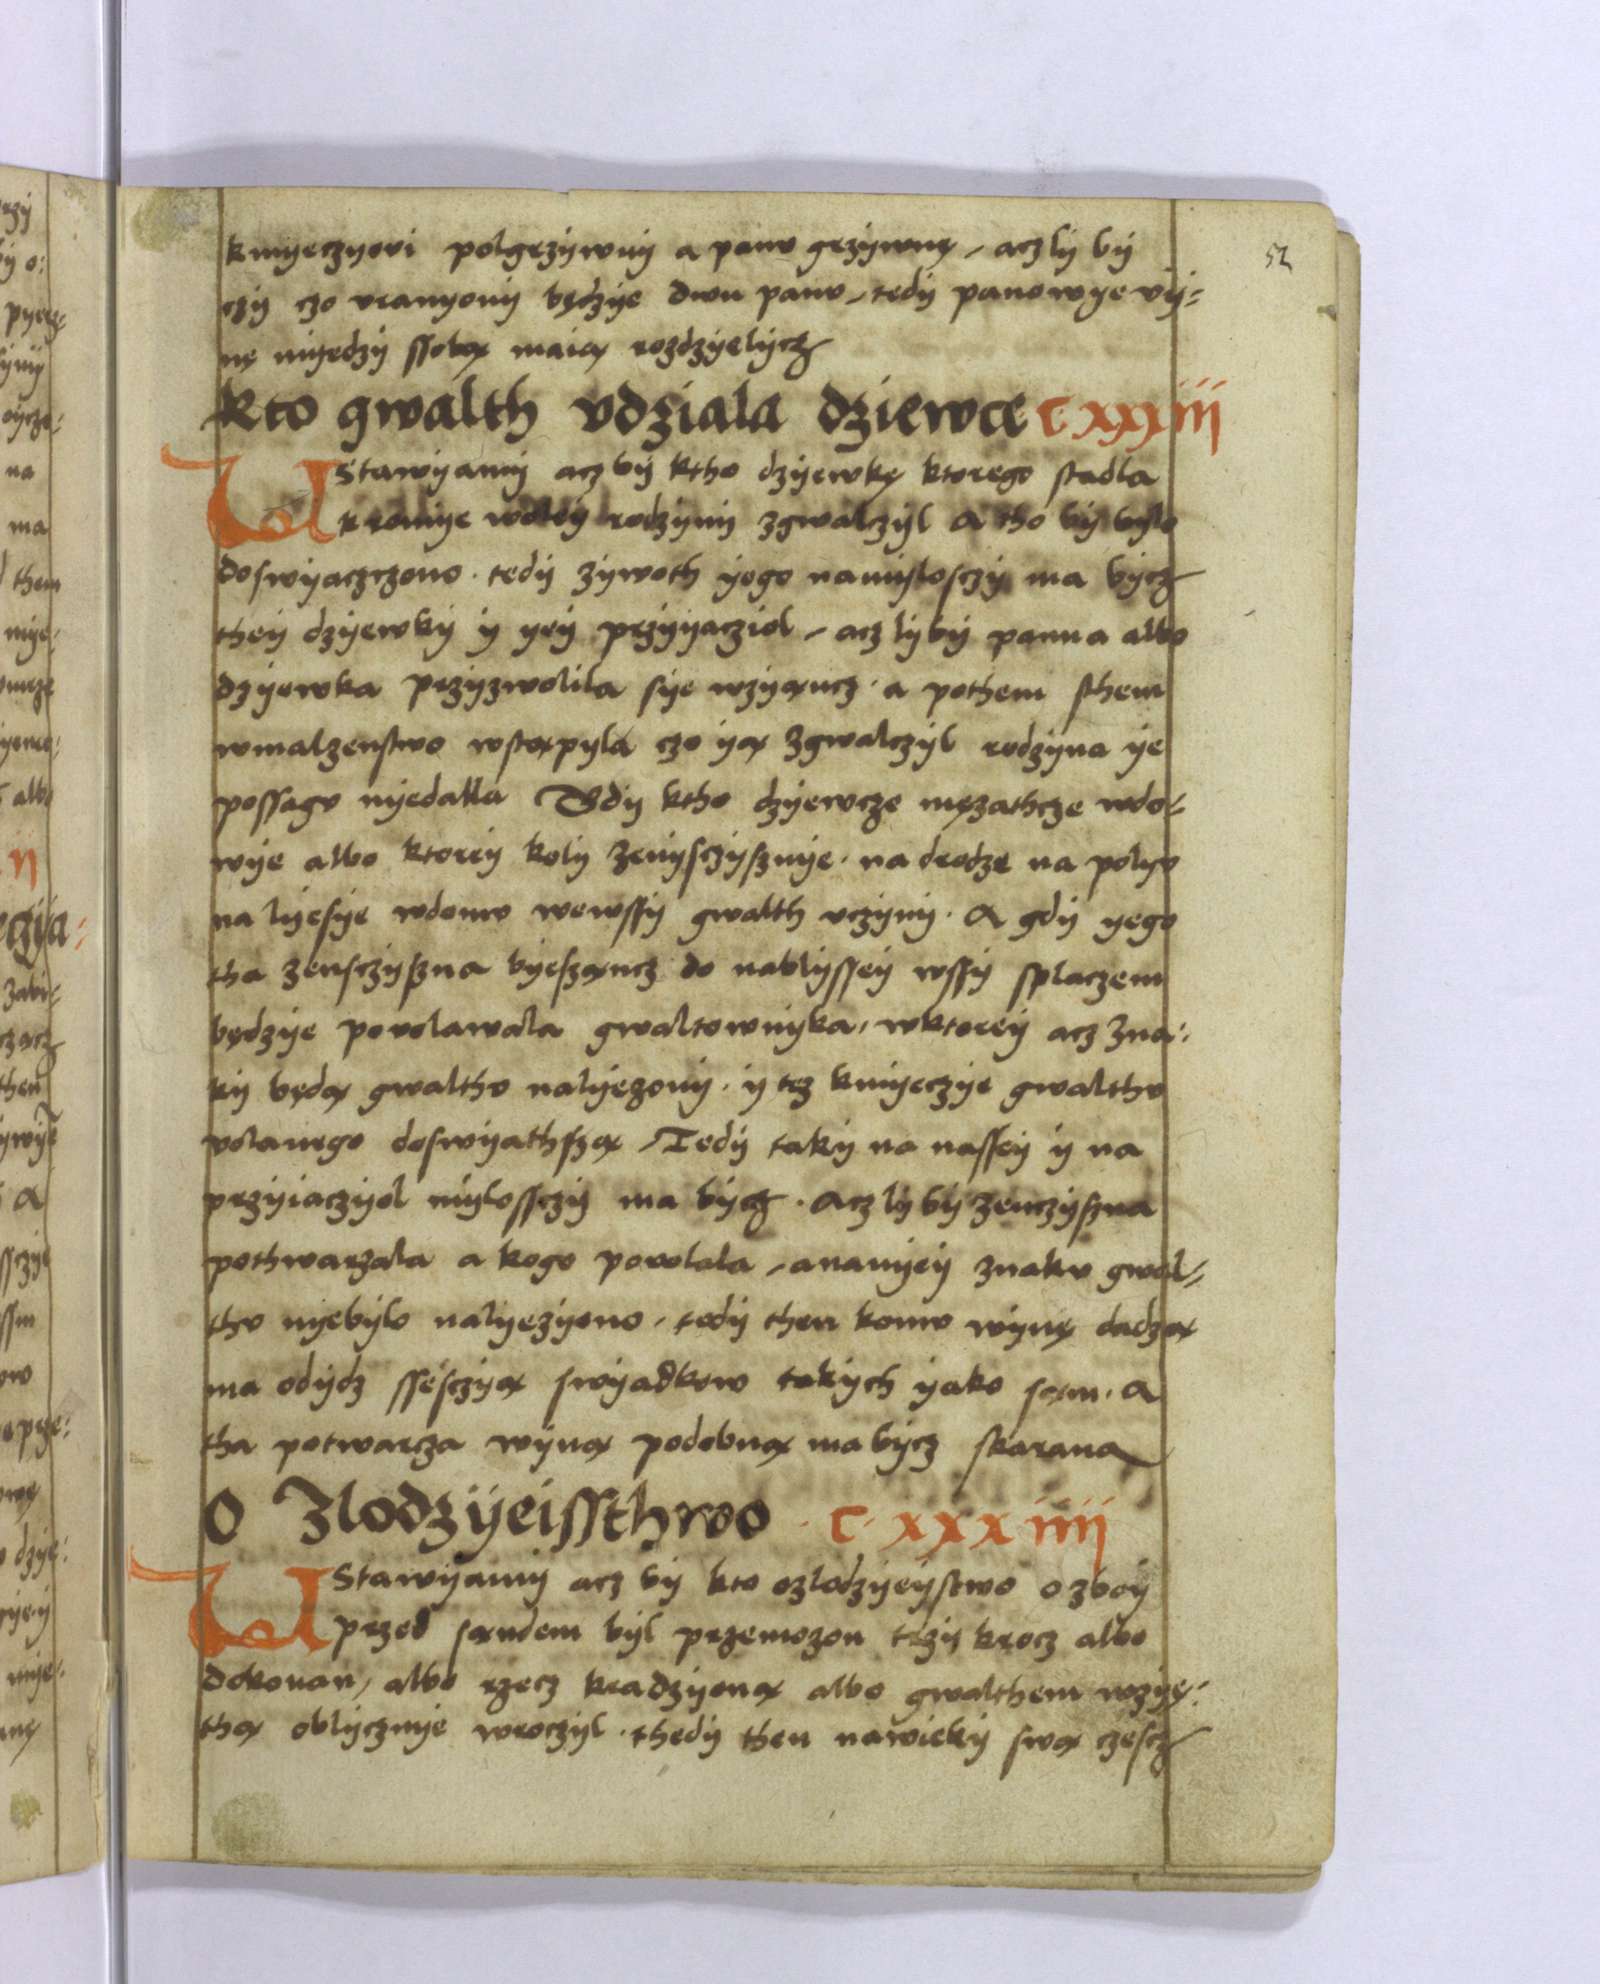 52
kmyeczyovi polgrzywny a panv grzywnę, acz ly by
czy czo vranyony będzye dwu panv, tedy panowye vy⸗
nę myedzy ssobą maią rozdzyelycz
Kto gwalth vdziala dziewce C xxxiii
Vstawyamy acz by ktho dzyewkę ktorego stadla
kromye woley rodzyny zgwalczyl a tho by bylo
doswyaczczono. tedy zywoth yego namylosczy ma bycz
they dzyewky y yey przyyacziol, acz ly by panna albo
dzyewka przyzwolila sye wzyąncz. a pothem sthem
wmalzenstwo wstąpyla czo yą zgwalczyl rodzyna ye
possagv nyedalka Gdy ktho dzyewcze mężathcze wdo⸗
wye albo ktorey koly zenysczysznye. na drodze na polyv
na lyesye wdomv wewssy gwalth vczyny. A gdy yego
tha zensczyszna byeszącz do nablyssey wssy splaczem
będzye povolawala gwaltownyka, wktorey acz zna⸗
ky będą gwalthv nalyezony. y tez kmyeczye gwalthv
volanego doswyathszą, Tedy taky na nassey y na
przyiaczyol mylossczy ma bycz. Acz ly by zenczyszna
pothwarzala a kogo powolala, ananyey znakv gwal⸗
thv nyebylo nalyezyono, tedy then komv wynę dadzą
ma odydz ssesczyą swyadkow takych yako sąm. A
tha potwarcza wyną podobną ma bycz skarana
O Zlodzyeissthwo . C. xxxiiii
Vstawyamy acz by kto ozlodzyeystwo o zboy
przed sąndem byl przemozon trzy krocz albo
dokonan, albo rzecz kradzyoną albo gwalthem wzyę⸗
thą oblycznye wroczyl. thedy then nawieky swą czescz